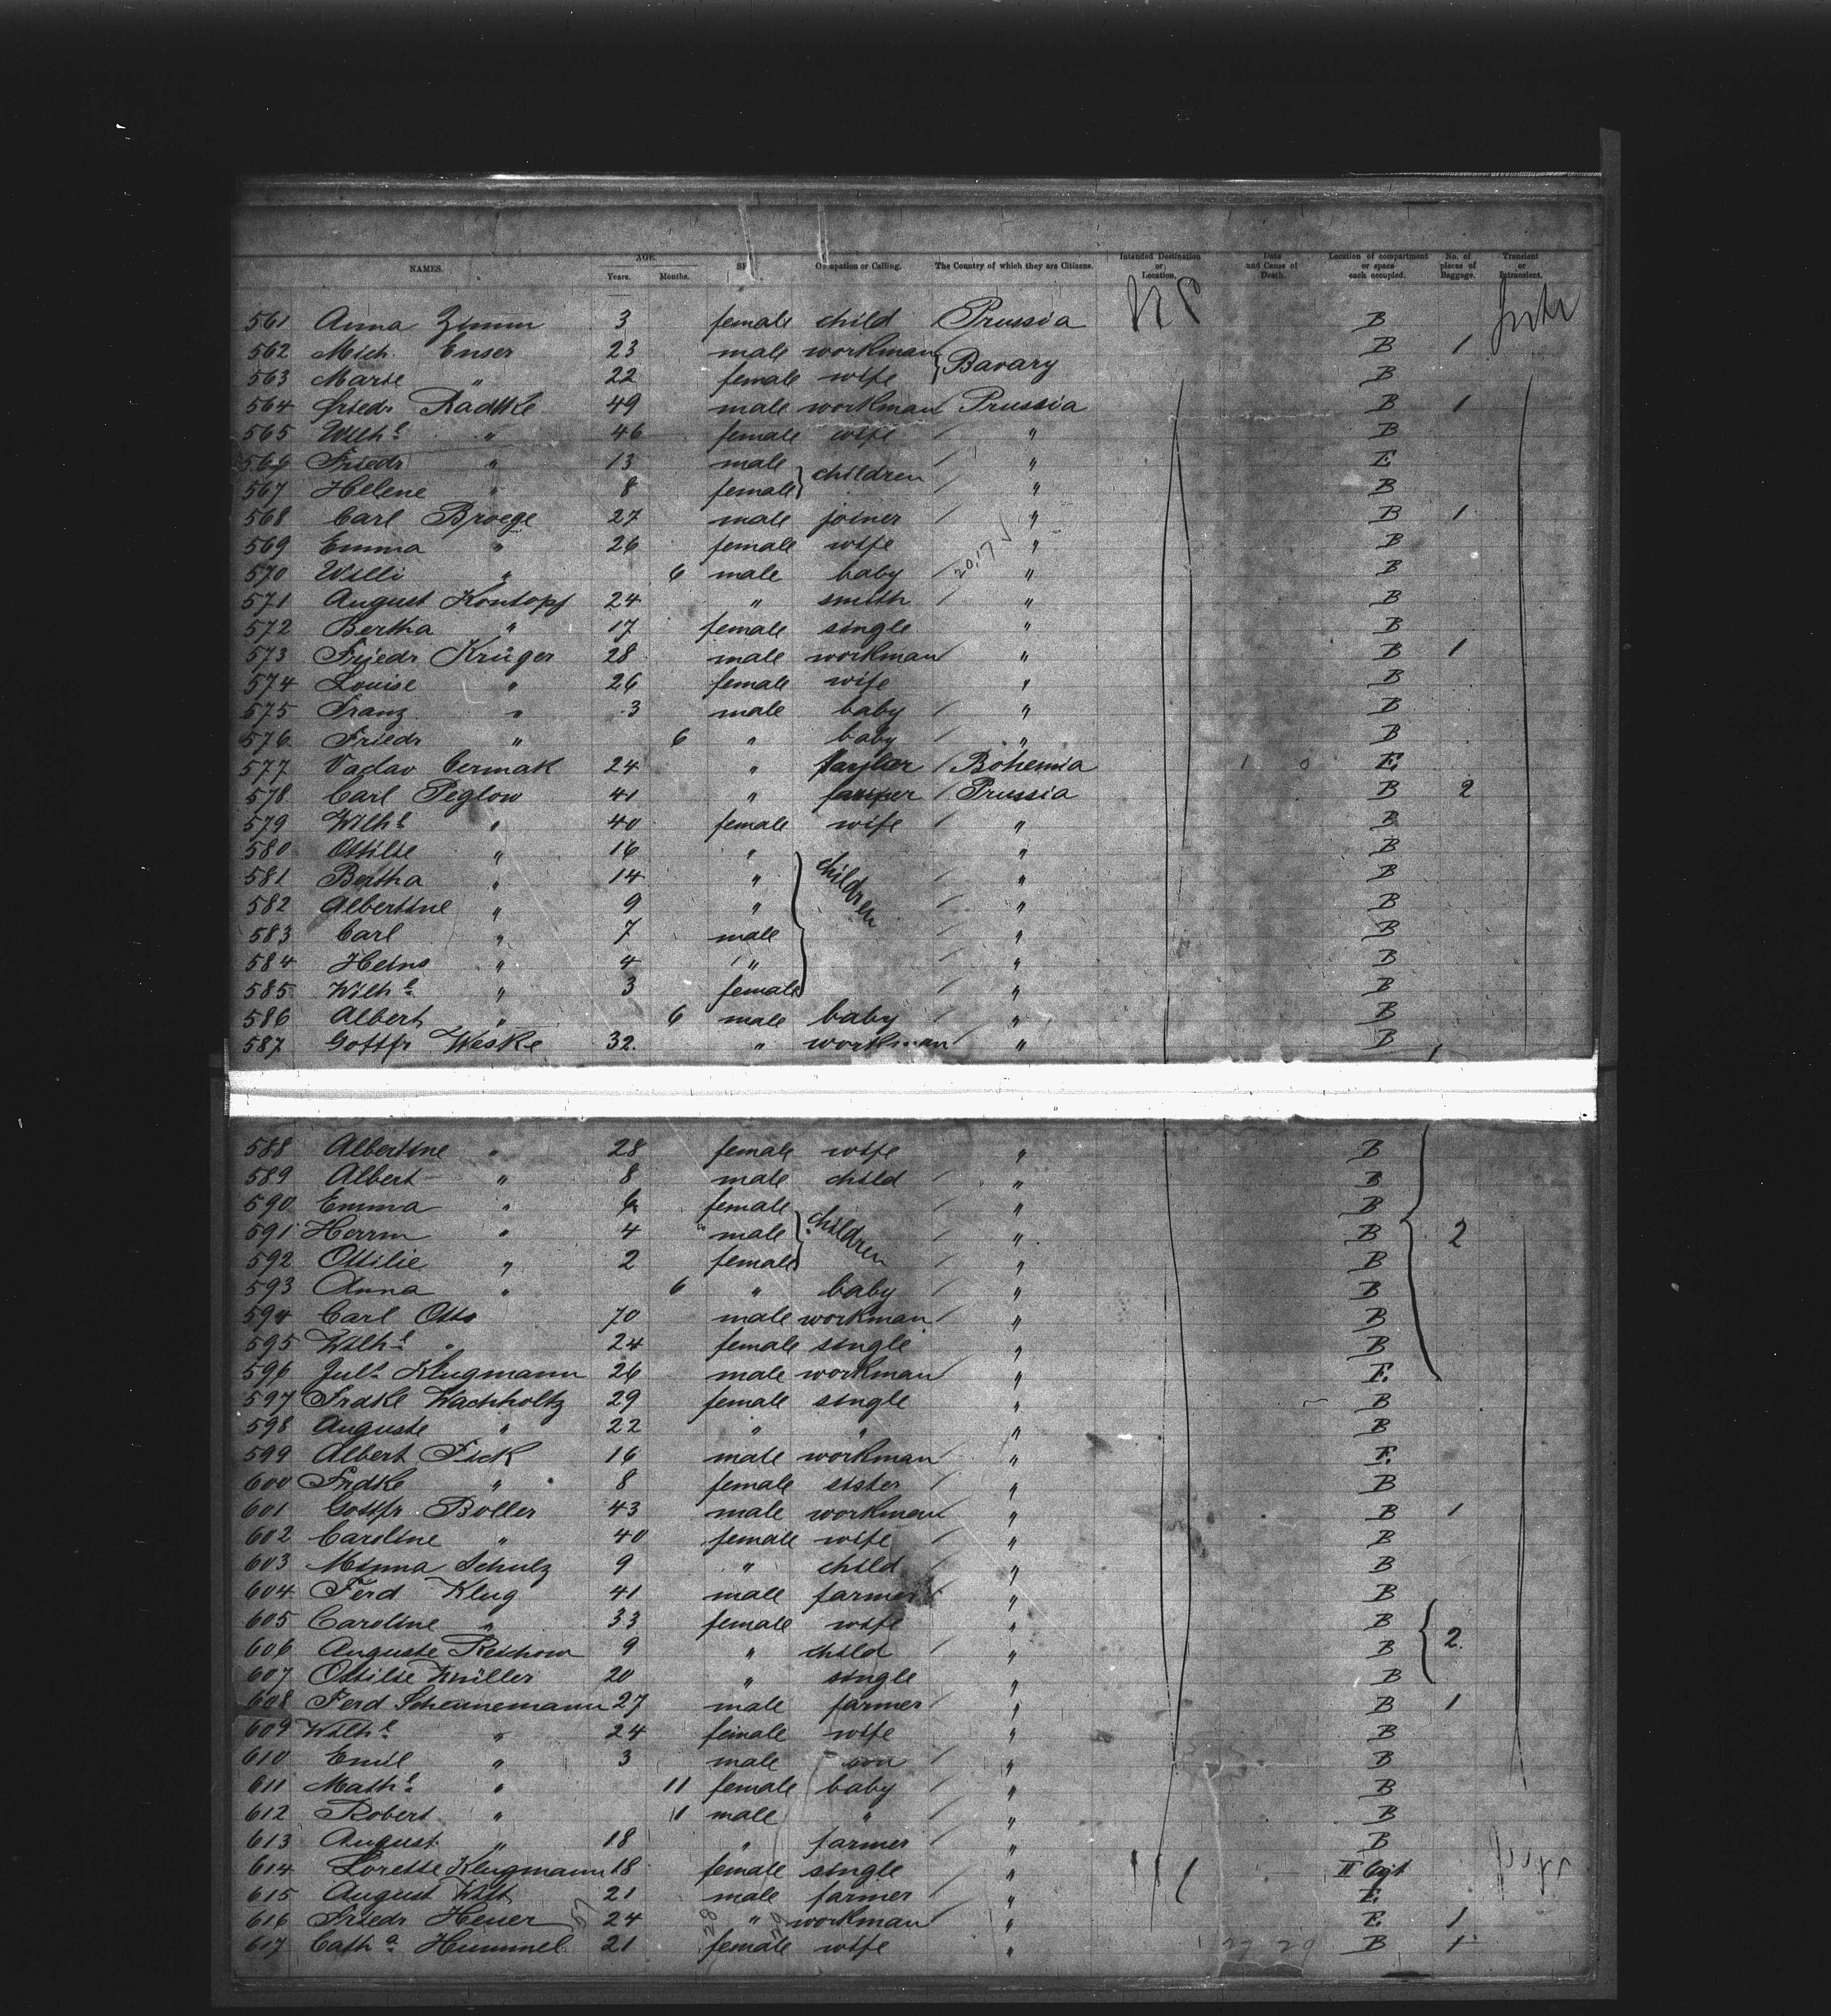 NAMES. AGE. Years. Months. SEX. Occupation or Calling. The Country of which they are Citizens. Intended Destination or Location. Date and Cause of Death. Location of compartment or space each occupied. No. of pieces of Baggage. Transient or Intransient.
561 Anna Zimm 3 female child Prussia US B
562 Mich. Enser 23 male workman B 1
563 Marie " 22 female wife } Bavary B
564 Friedr Radtke 49 male workman Prussia B 1
565 Wilhe " 46 female wife " B
566 Friedr " 13 male " E
567 Helene " 8 female } children " B
568 Carl Broege 27 male joiner " B 1
569 Emma " 26 female wife " B
570 Willi " 6 male baby " B
571 August Kontopf 24 " smith " B
572 Bertha " 17 female single " B
573 Friedr Krüger 28 male workman " B 1
574 Louise " 26 female wife " B
575 Franz " 3 male baby " B
576 Friedr " 6 " baby " B
577 Vaclav Cermak 24 " Bohemia E
578 Carl Peglow 41 " farmer Prussia B 2
579 Wilhe " 40 female wife " B
580 Ottilie " 16 " " B
581 Bertha " 14 " children " B
582 Albertine " 9 " " B
583 Carl " 7 male " B
584 Heino " 4 " " B
585 Wilhe " 3 female " B
586 Albert " 6 male baby " B
587 Gottfr Weske 32 " workman " B
588 Albertine " 28 female wife " B
589 Albert " 8 male child " B
590 Emma " 6 female " B
591 Herrm " 4 male } children " B 2
592 Ottilie " 2 female " B
593 Anna " 6 " baby " B
594 Carl Otto 70 male workman " B
595 Wilhe " 24 female single " B
596 Juls Klugmann 26 male workman " E
597 Frdke Wachholtz 29 female single " B
598 Auguste " 22 " " " B
599 Albert Fick 16 male workman " E
600 Frdke " 8 female sister " B
601 Gottfr Boller 43 male workman " B 1
602 Caroline " 40 female wife " B
603 Minna Schulz 9 " child " B
604 Ferd Klug 41 male farmer " B
605 Caroline " 33 female wife " B
606 Auguste Reschow 9 " child " B 2
607 Ottilie Müller 20 " single " B
608 Ferd Scheunemann 27 male farmer " B 1
609 Wilhe " 24 female wife " B
610 Emil " 3 male son " B
611 Mathe " 11 female baby " B
612 Robert " 11 male " " B
613 August " 18 " farmer " B
614 Lorette Klugmann 18 female single " II Cajt
615 August Witt 21 male farmer " E
616 Friedr Heuer 24 " workman " E 1
617 Catha Hummel 21 female wife " B 1